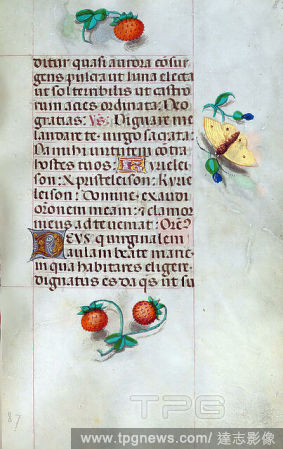 ditur quasi aurora consur
gens pulcra ut luna electa
ut sol terribilis ut castro
rum acies ordinata: Deo
gratias: Vs: Dignare me
laudare te: virgo sacrata:
Da mihi virtutem cotra
hostes tuos: Kyrielei
son: Xpristeleison: Kyrie
leison: Domine exaudi
oronem meam: & clamor
meus ad te veniat: Orõ
DEVS qui virginalem
aulam beate marie
in qua habitares eligere
dignatus es da qs ut su
87
TPG
www.tpgnews.com/ 達志影像